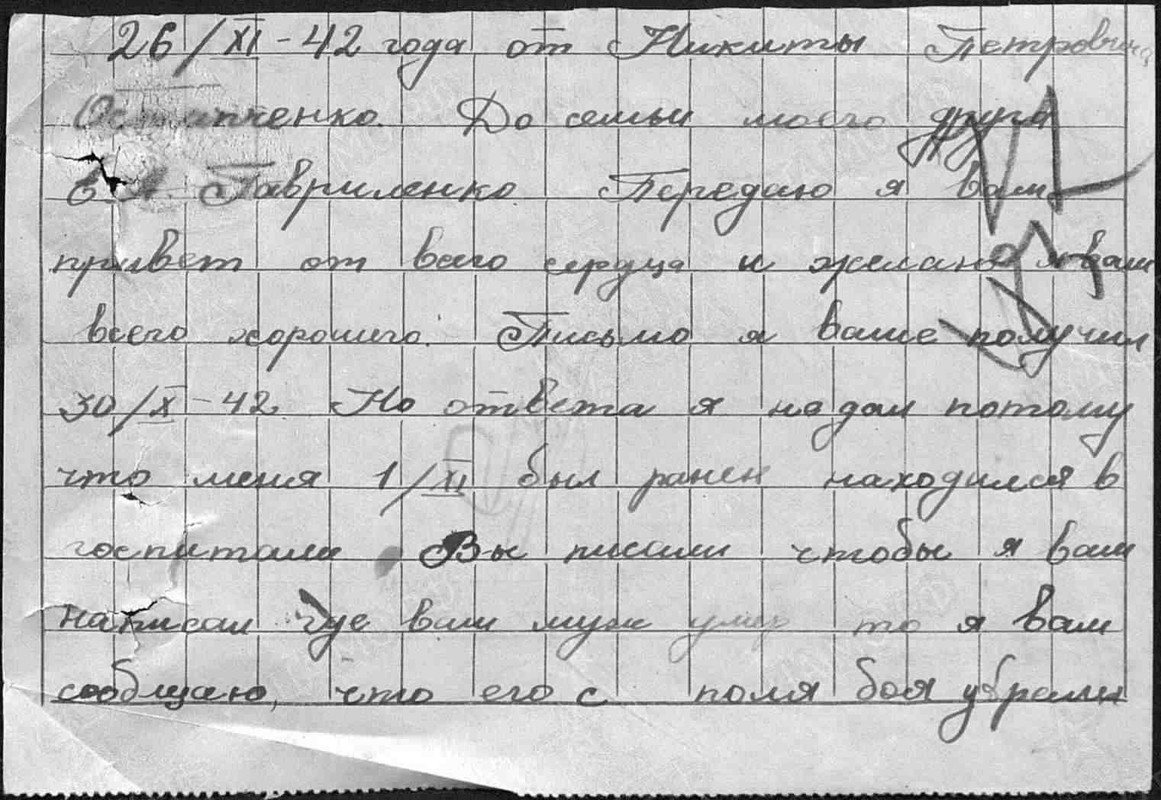 26/XI-42 года от Никиты Петровича
Остапченко. До семьи моего друга
Е.А. Гавриленко Передаю я вам
привет от всего сердца и желаю я вам
всего хорошего. Письмо я ваше получил
30/X-42. Но ответа я не дал потому
что меня 1/XI был ранен находился в
госпитале Вы писали чтобы я вам
написал где ваш муж умер то я вам
сообщаю, что его с поля боя убрали